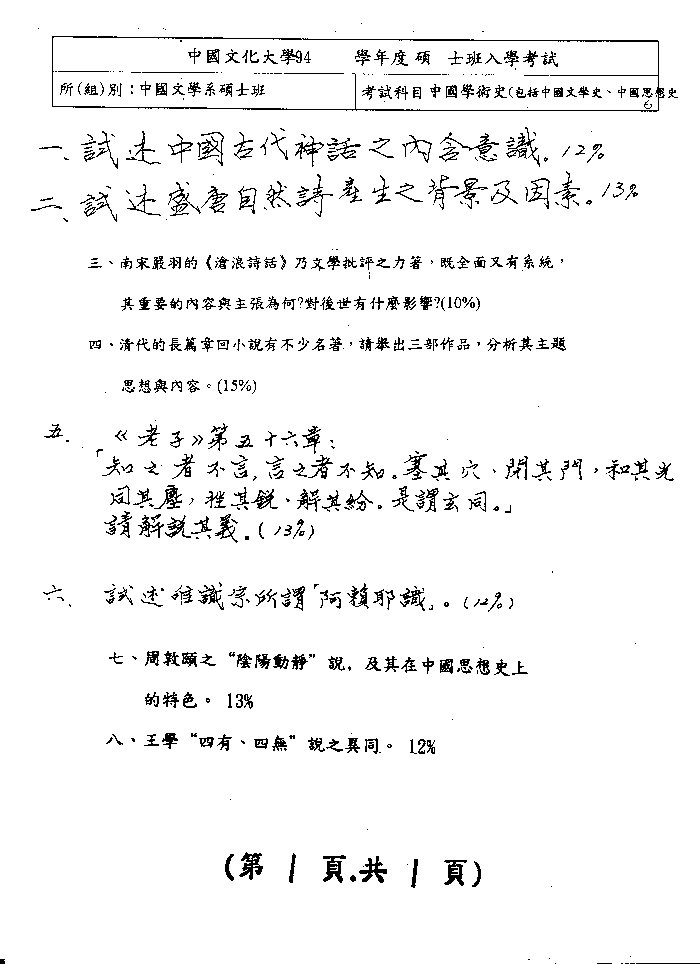 中國文化大學94 學年度 碩 士班入學考試
所(組)別：中國文學系碩士班 考試科目 中國學術史(包括中國文學史、中國思想史
6
一、試述中國古代神話之內含意識。12%
二、試述盛唐自然詩產生之背景及因素。13%
三、南宋嚴羽的《滄浪詩話》乃文學批評之力著，既全面又有系統，
其重要的內容與主張為何?對後世有什麼影響?(10%)
四、清代的長篇章回小說有不少名著，請舉出三部作品，分析其主題
思想與內容。(15%)
五. 《老子》第五十六章：
「知之者不言，言之者不知。塞其穴、閉其門，和其光
同其塵，挫其銳、解其紛。是謂玄同。」
請解說其義。(13%)
六. 試述唯識宗所謂「阿賴耶識」。(12%)
七、周敦頤之“陰陽動靜”說，及其在中國思想史上
的特色。 13%
八、王學“四有、四無”說之異同。 12%
(第 1 頁.共 1 頁)